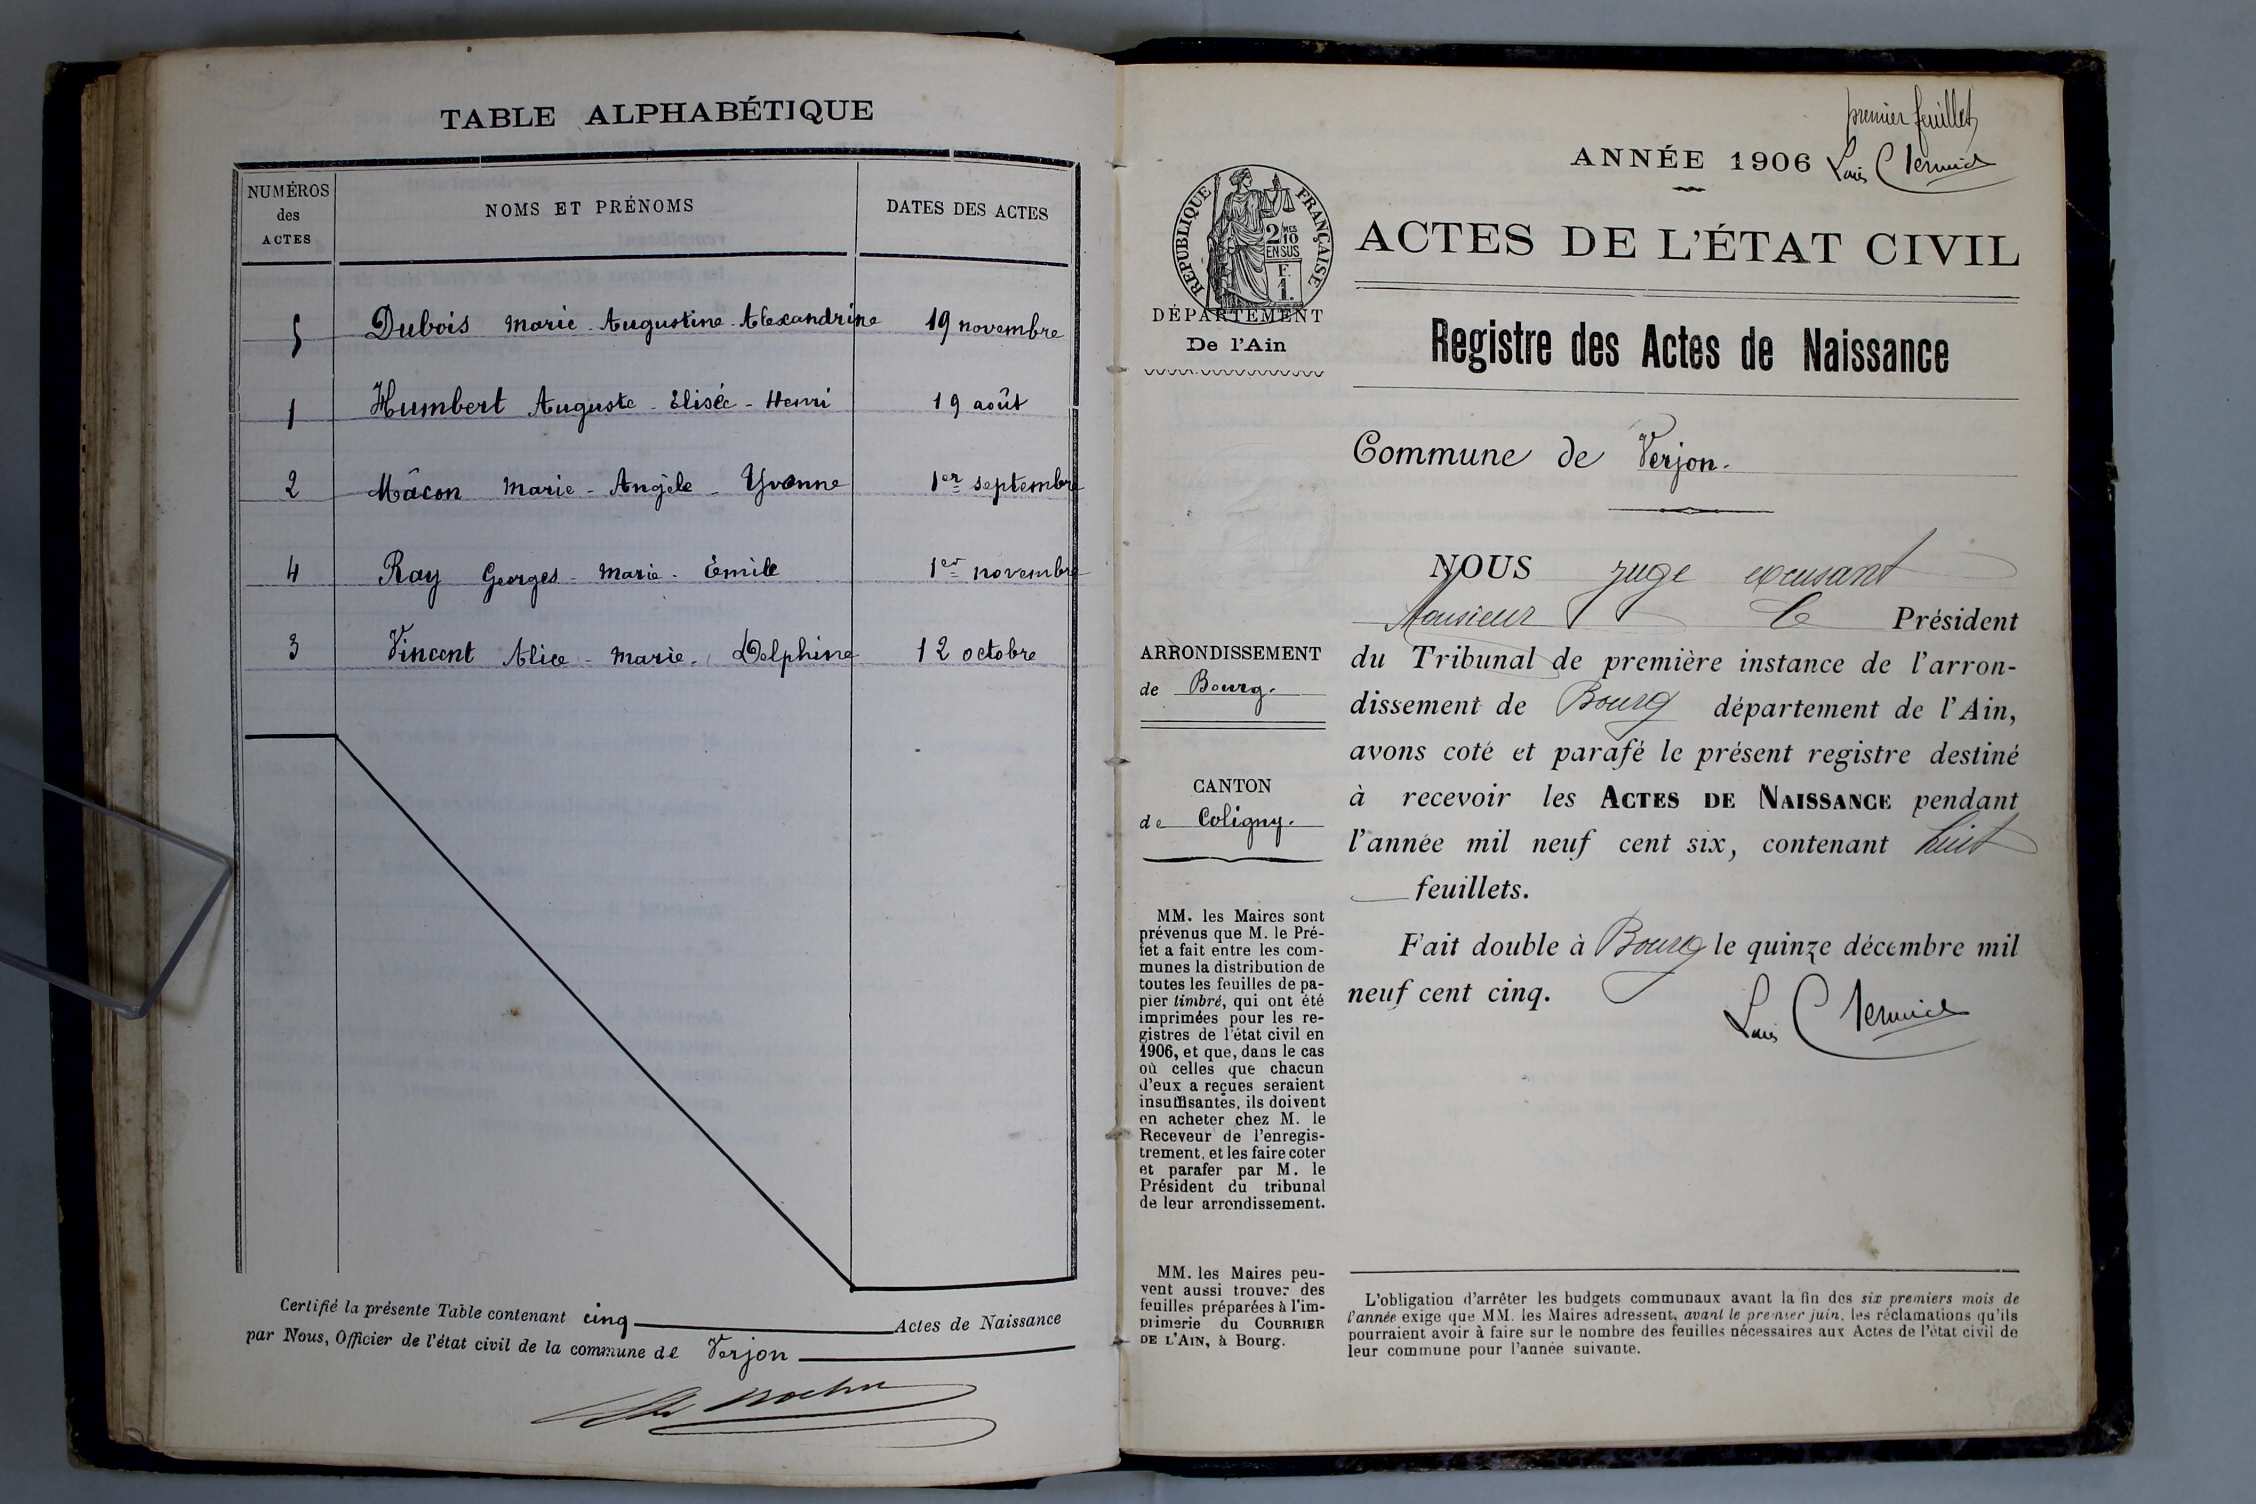 TABLE ALPHABÉTIQUE
NUMÉROS
des
ACTES
NOMS ET PRÉNOMS
DATES DES ACTES
5 Dubois Marie - Augustine - Alexandrine 19 novembre
1 Humbert Auguste - Elisée - Henri 19 août
2 Mâcon Marie - Angèle - Yvonne 1er septembre
4 Ray Georges - Marie - Emile 1er novembre
3 Vincent Alice - Marie - Delphine 12 octobre
Certifié la présente Table contenant cinq Actes de Naissance
par Nous, Officier de l'état civil de la commune de Verjon
premier feuillet
ANNÉE 1906
RÉPUBLIQUE FRANÇAISE
2 MES
10
EN SUS
F.
1.
ACTES DE L'ÉTAT CIVIL
DÉPARTEMENT
De l'Ain
Registre des Actes de Naissance
Commune de Verjon.
NOUS juge excusant
Monsieur le Président
du Tribunal de première instance de l'arron-
dissement de Bourg département de l'Ain,
avons coté et parafé le présent registre destiné
à recevoir les ACTES DE NAISSANCE pendant
l'année mil neuf cent six, contenant huit
feuillets.
Fait double à Bourg le quinze décembre mil
neuf cent cinq.
ARRONDISSEMENT
de Bourg.
CANTON
de Coligny.
MM. les Maires sont
prévenus que M. le Pré-
fet a fait entre les com-
munes la distribution de
toutes les feuilles de pa-
pier timbré, qui ont été
imprimées pour les re-
gistres de l'état civil en
1906, et que, dans le cas
où celles que chacun
d'eux a reçues seraient
insuffisantes, ils doivent
en acheter chez M. le
Receveur de l'enregis-
trement, et les faire coter
et parafer par M. le
Président du tribunal
de leur arrondissement.
MM. les Maires peu-
vent aussi trouver des
feuilles préparées à l'im-
primerie du COURRIER
DE L'AIN, à Bourg.
L'obligation d'arrêter les budgets communaux avant la fin des six premiers mois de
l'année exige que MM. les Maires adressent, avant le premier juin, les réclamations qu'ils
pourraient avoir à faire sur le nombre des feuilles nécessaires aux Actes de l'état civil de
leur commune pour l'année suivante.